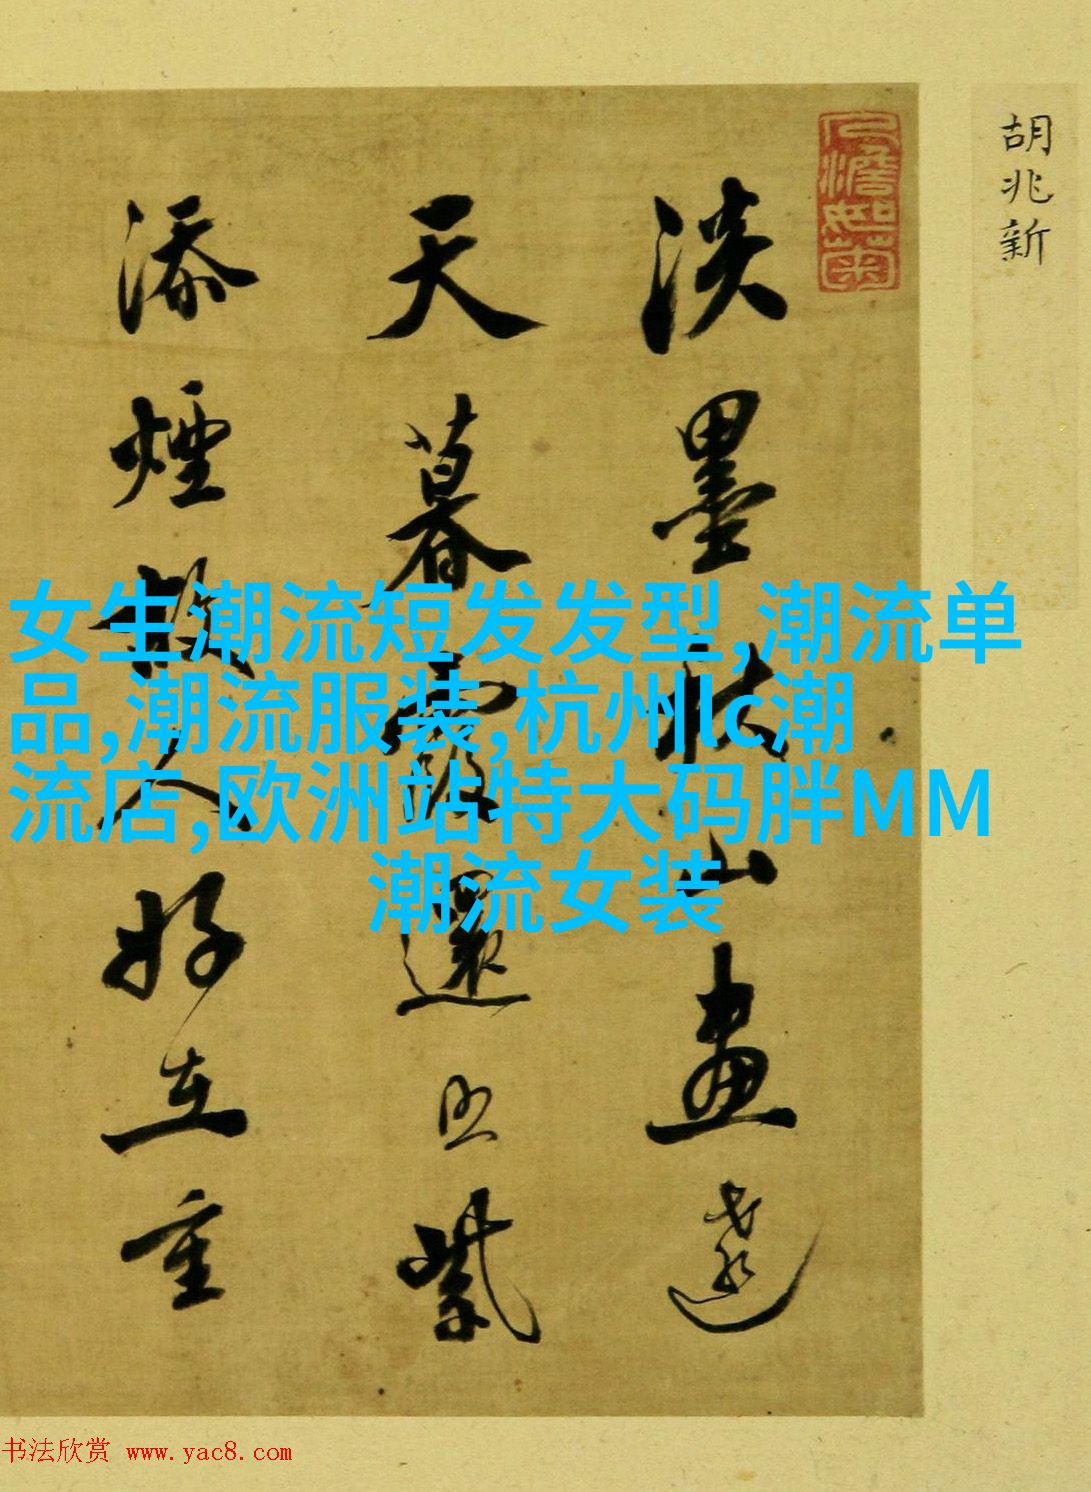 胡兆新
淡墨秋山畫遠
天暮霞還照紫
添煙故人好在重
女生潮流短发发型,潮流单
品,潮流服装,杭州lc潮
流店,欧洲站特大码胖MM
潮流女装
书法欣赏 www.yac8.com